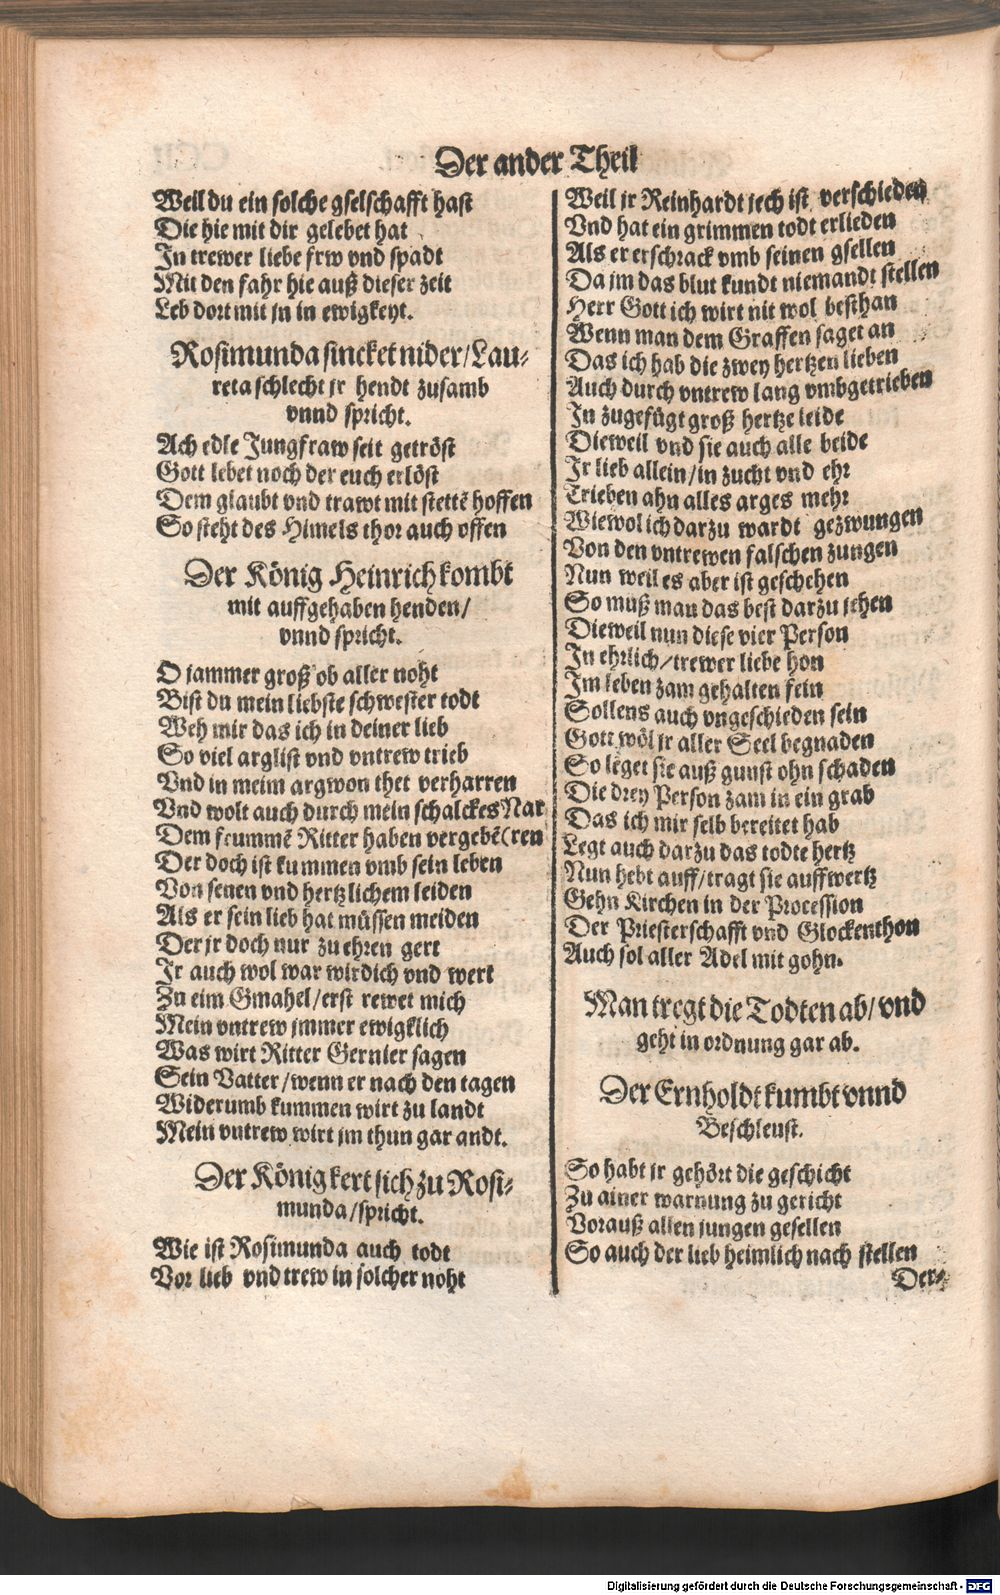 Der ander Theil
Weil du ein solche gselschafft hast
Die hie mit dir gelebet hat
In trewer liebe frw vnd spadt
Mit den fahr hie auß dieser zeit
Leb dort mit jn in ewigkeyt.
Rosimunda sincket nider/Lau⸗
reta schlecht jr hendt zusamb
vnnd spricht.
Ach edle Jungfraw seit getröst
Gott lebet noch der euch erlöst
Dem glaubt vnd trawt mit stettẽ hoffen
So steht des Himels thor auch offen
Der König Heinrich kombt
mit auffgehaben henden/
vnnd spricht.
O jammer groß ob aller noht
Bist du mein liebste schwester todt
Weh mir das ich in deiner lieb
So viel arglist vnd vntrew trieb
Vnd in meim argwon thet verharren
Vnd wolt auch durch mein schalckes Nar
Dem frummẽ Ritter haben vergebẽ(ren
Der doch ist kummen vmb sein leben
Von senen vnd hertzlichem leiden
Als er sein lieb hat müssen meiden
Der jr doch nur zu ehren gert
Ir auch wol war wirdich vnd wert
Zu eim Gmahel/erst rewet mich
Mein vntrew jmmer ewigklich
Was wirt Ritter Gernier sagen
Sein Vatter/wenn er nach den tagen
Widerumb kummen wirt zu landt
Mein vntrew wirt jm thun gar andt.
Der König kert sich zu Rosi⸗
munda/spricht.
Wie ist Rosimunda auch todt
Vor lieb vnd trew in solcher noht
Weil jr Reinhardt jech ist verschieden
Vnd hat ein grimmen todt erlieden
Als er erschrack vmb seinen gsellen
Da jm das blut kundt niemandt stellen
Herr Gott ich wirt nit wol besthan
Wenn man dem Graffen saget an
Das ich hab die zwey hertzen lieben
Auch durch vntrew lang vmbgetrieben
In zugefügt groß hertze leide
Dieweil vnd sie auch alle beide
Ir lieb allein/in zucht vnd ehr
Trieben ahn alles arges mehr
Wiewol ich darzu wardt gezwungen
Von den vntrewen falschen zungen
Nun weil es aber ist geschehen
So muß man das best darzu jehen
Dieweil nun diese vier Person
In ehrlich/trewer liebe hon
Im leben zam gehalten fein
Sollens auch vngeschieden sein
Gott wöl jr aller Seel begnaden
So leget sie auß gunst ohn schaden
Die drey Person zam in ein grab
Das ich mir selb bereitet hab
Legt auch darzu das todte hertz
Nun hebt auff/tragt sie auffwertz
Gehn Kirchen in der Procession
Der Priesterschafft vnd Glockenthon
Auch sol aller Adel mit gohn.
Man tregt die Todten ab/vnd
geht in ordnung gar ab.
Der Ernholdt kumbt vnnd
Beschleust.
So habt jr gehört die geschicht
Zu ainer warnung zu gericht
Vorauß allen jungen gesellen
So auch der lieb heimlich nach stellen
Der⸗
Digitalisierung gefördert durch die Deutsche Forschungsgemeinschaft - DFG